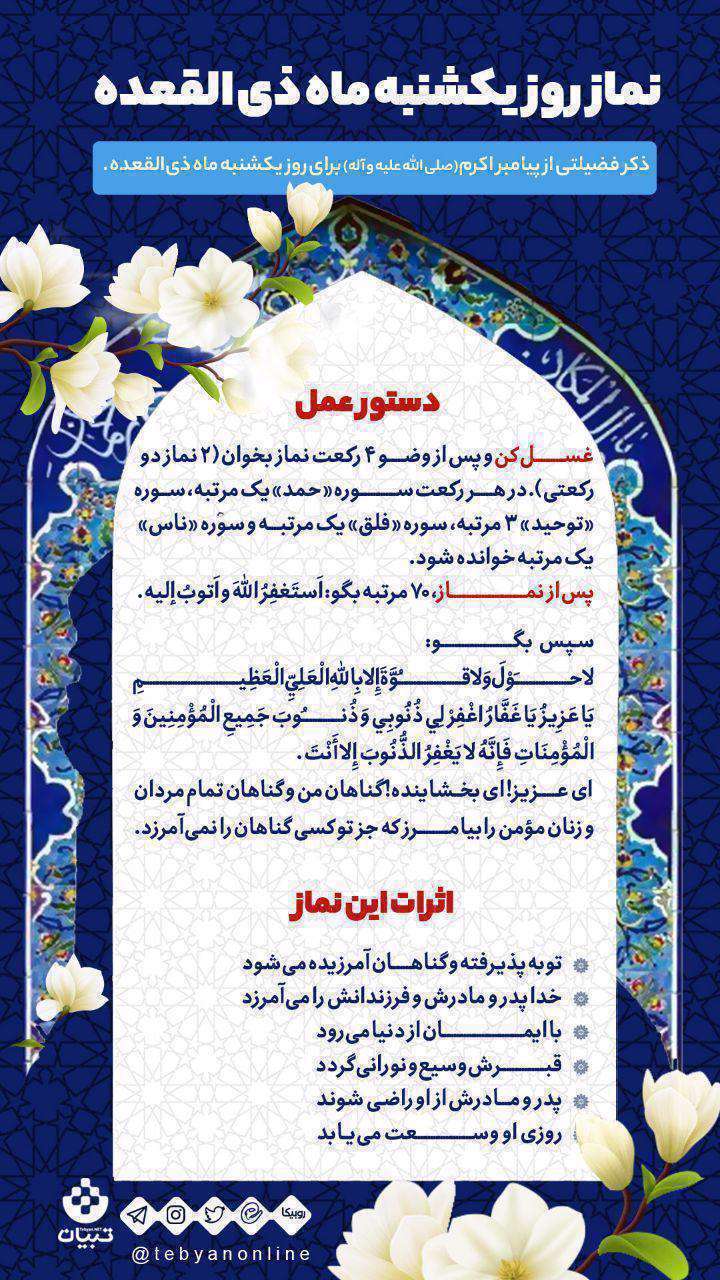 نماز روز یکشنبه ماه ذی القعده
ذکر فضیلتی از پیامبر اکرم (صلی الله علیه و آله) برای روز یکشنبه ماه ذی القعده.
دستور عمل
غسل کن و پس از وضو ۴ رکعت نماز بخوان (۲ نماز دو
رکعتی). در هر رکعت سوره «حمد» یک مرتبه، سوره
«توحید» ۳ مرتبه، سوره «فلق» یک مرتبه و سوره «ناس»
یک مرتبه خوانده شود.
پس از نماز، ۷۰ مرتبه بگو: اَستَغفِرُ اللهَ و اَتوبُ إلیه.
سپس بگو:
لا حَوْلَ وَلا قُوَّةَ إِلا بِاللهِ الْعَلِيِّ الْعَظِيمِ
يَا عَزِيزُ يَا غَفَّارُ اغْفِرْ لِي ذُنُوبِي وَ ذُنُوبَ جَمِيعِ الْمُؤْمِنِينَ وَ
الْمُؤْمِنَاتِ فَإِنَّهُ لا يَغْفِرُ الذُّنُوبَ إِلا أَنْتَ.
ای عزیز! ای بخشاینده! گناهان من و گناهان تمام مردان
و زنان مؤمن را بیامرز که جز تو کسی گناهان را نمی آمرزد.
اثرات این نماز
توبه پذیرفته و گناهان آمرزیده می شود
خدا پدر و مادرش و فرزندانش را می آمرزد
با ایمان از دنیا می رود
قبرش وسیع و نورانی گردد
پدر و مادرش از او راضی شوند
روزی او وسعت می یابد
تبیان
Tebyan.NET
روبیکا
@tebyanonline